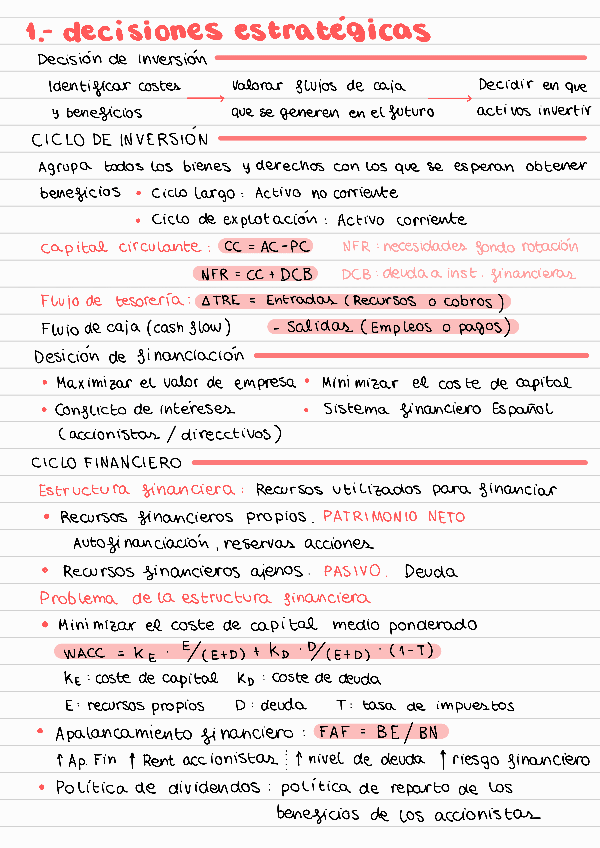 1.- decisiones estratégicas
Decisión de inversión
Identificar costes → Valorar flujos de caja → Decidir en que
y beneficios que se generen en el futuro activos invertir
CICLO DE INVERSIÓN
Agrupa todos los bienes y derechos con los que se esperan obtener
beneficios • Ciclo largo: Activo no corriente
• Ciclo de explotación: Activo corriente
Capital circulante: CC = AC-PC NFR: necesidades fondo rotación
NFR = CC + DCB DCB: deuda a inst. financieras
Flujo de tesorería: ΔTRE = Entradas (Recursos o cobros)
Flujo de caja (cash flow) - Salidas (Empleos o pagos)
Desición de financiación
• Maximizar el valor de empresa • Minimizar el coste de capital
• Conflicto de intereses • Sistema financiero Español
(accionistas / direcctivos)
CICLO FINANCIERO
Estructura financiera: Recursos utilizados para financiar
• Recursos financieros propios. PATRIMONIO NETO
Autofinanciación, reservas acciones
• Recursos financieros ajenos. PASIVO. Deuda
Problema de la estructura financiera
• Minimizar el coste de capital medio ponderado
WACC = KE · E/(E+D) + KD · D/(E+D) · (1-T)
KE: coste de capital KD: coste de deuda
E: recursos propios D: deuda T: tasa de impuestos
• Apalancamiento financiero: FAF = BE/BN
↑ Ap. Fin ↑ Rent accionistas ↑ nivel de deuda ↑ riesgo financiero
• Política de dividendos: política de reparto de los
beneficios de los accionistas